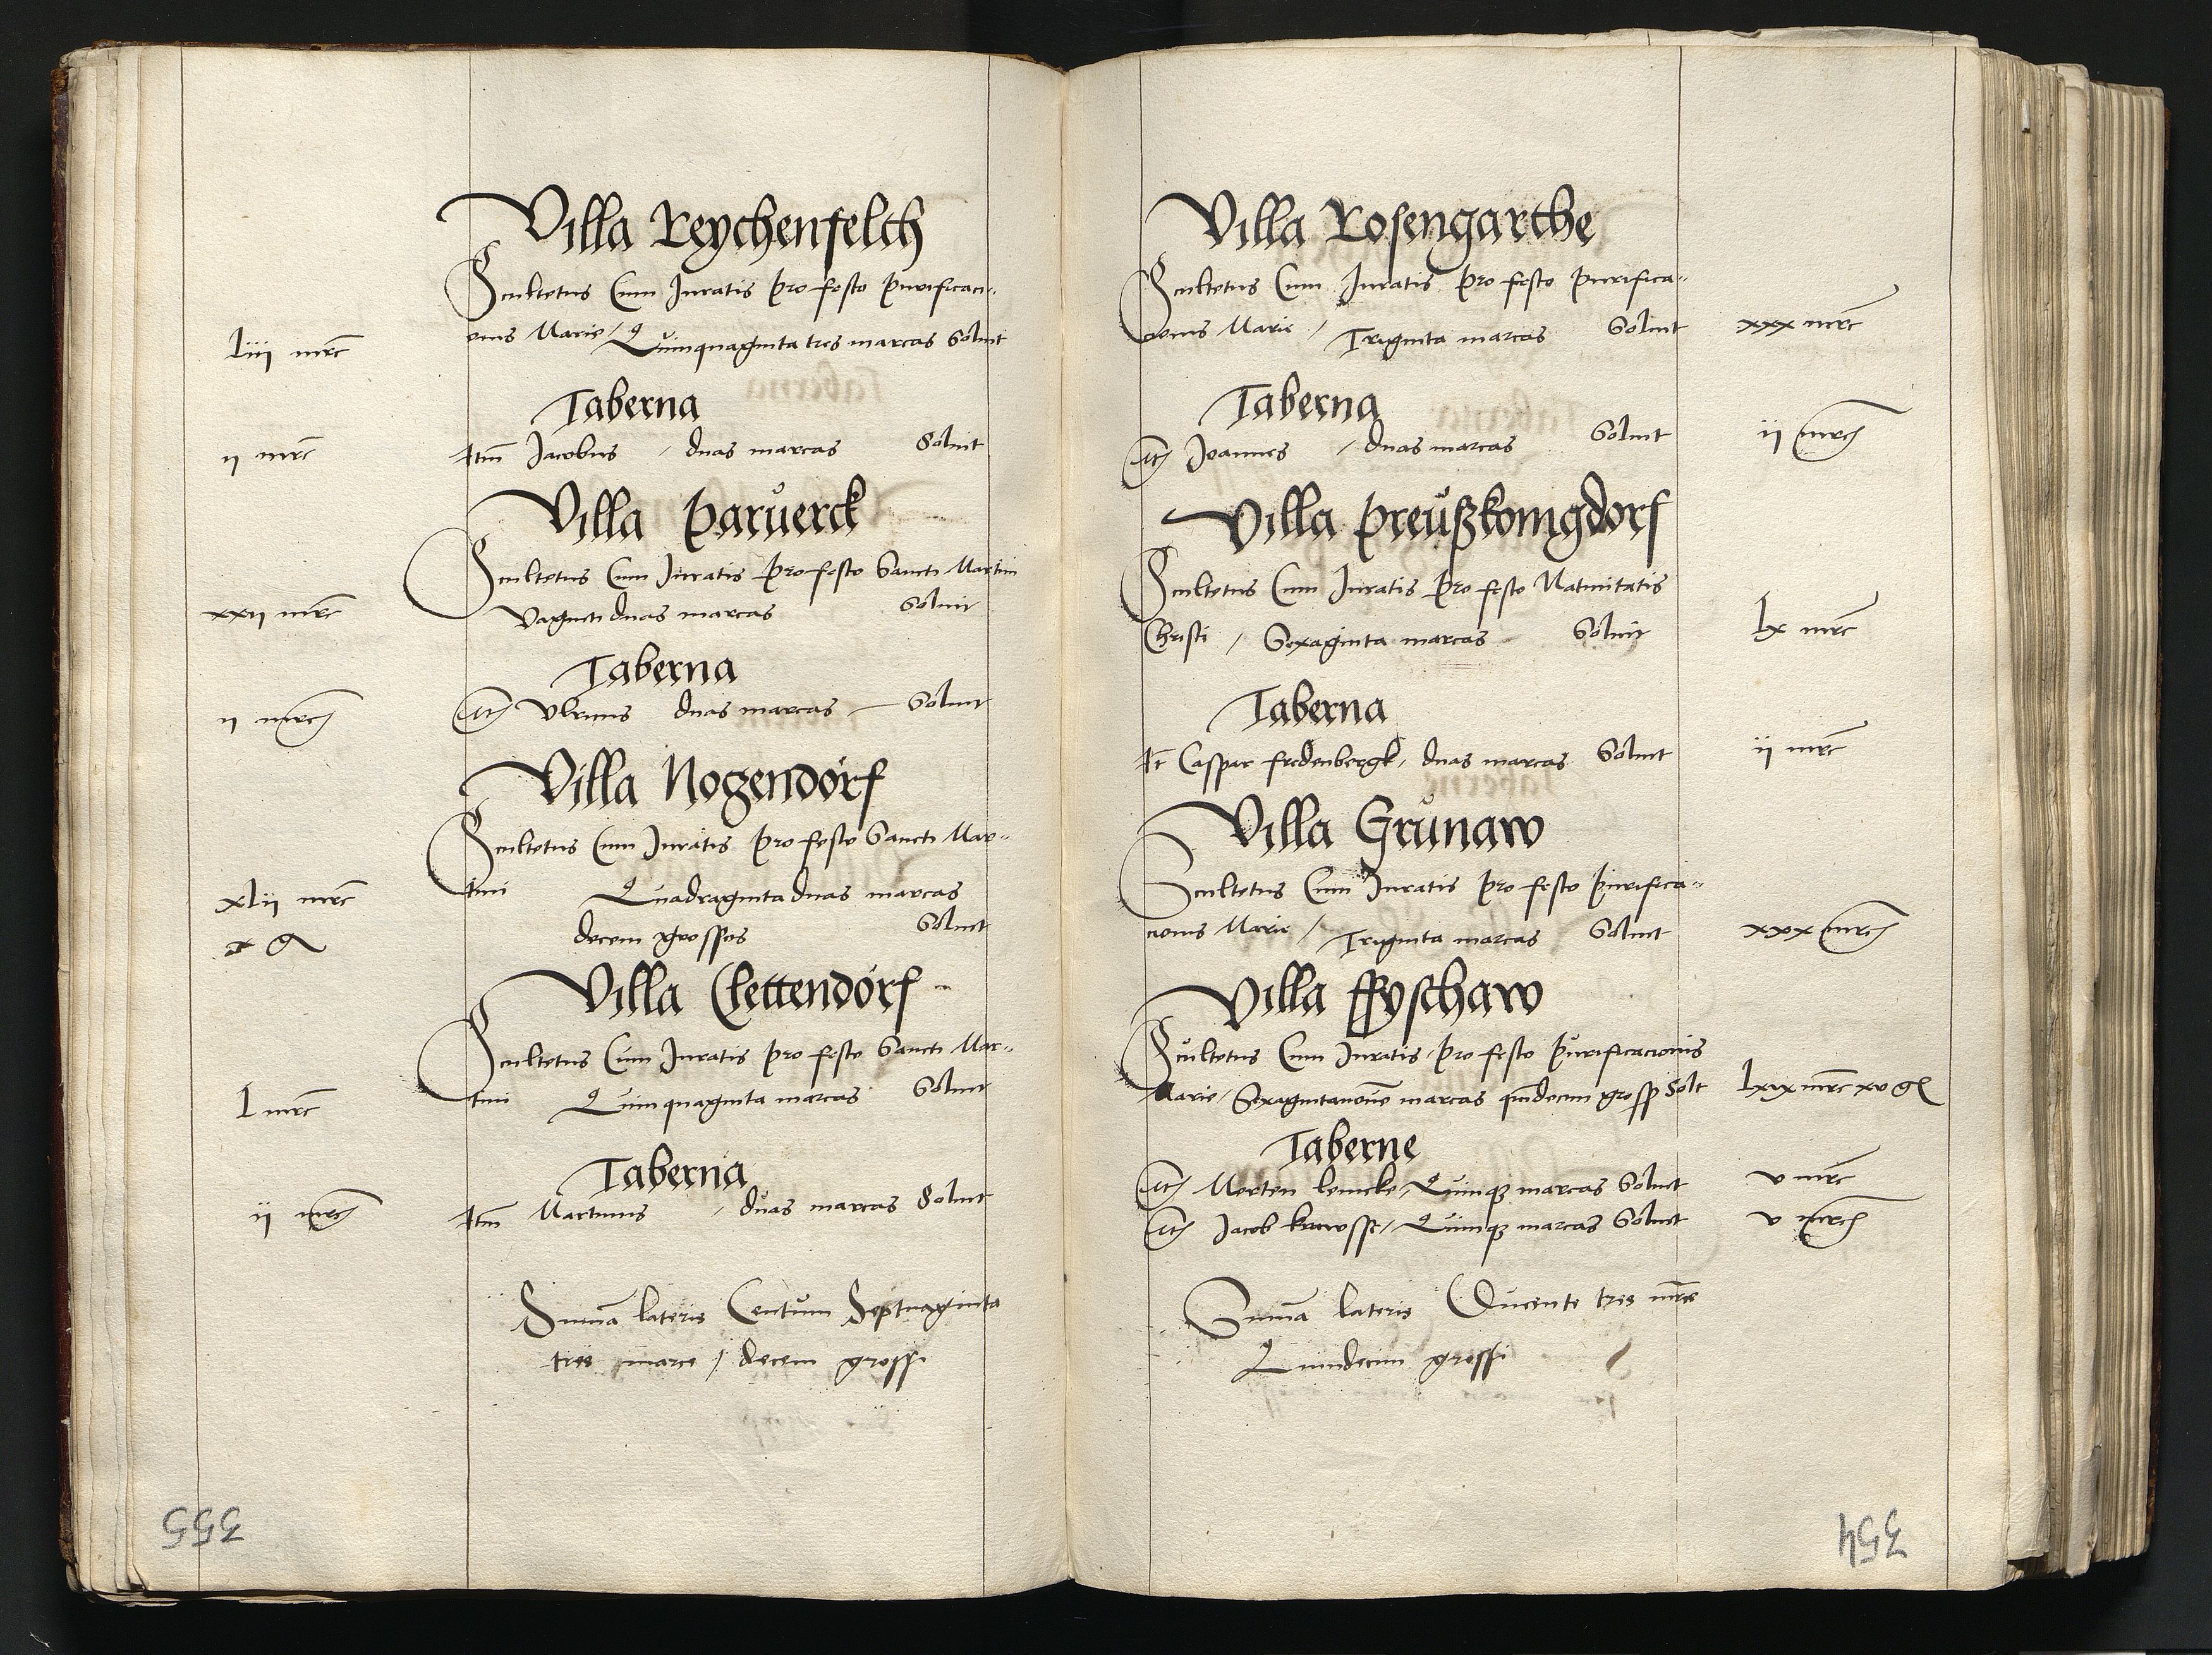 Villa Reychenfelth
Scultetus Cum Juratis pro festo purificaci-
onis Marie / Quinquaginta tres marcas Soluit
Liii mrc
Taberna
Itm Jacobus / duas marcas Soluit
ii mrc
Villa Paruerck
Scultetus Cum Juratis pro festo Sancti Martini
Vaginti duas marcas Soluit
xxii mrc
Taberna
It Vrbanus duas marcas Soluit
ii mrc
Villa Nogendorf
Scultetus Cum Juratis pro festo Sancti Mar-
tini Quadraginta duas marcas
xLii mrc
decem grossos Soluit
x g
Villa Clettendorf
Scultetus Cum Juratis pro festo Sancti Mar-
tini Quinquaginta marcas Soluit
L mrc
Taberna
Itm Martinus / duas marcas Soluit
ii mrc
Suma lateris Centum Septuaginta
tres marce / decem grossi
355
Villa Rosengarthe
Scultetus Cum Juratis pro festo purifica-
cionis Marie / Triginta marcas Soluit xxx mrc
Taberna
It Joannes / duas marcas Soluit ii mrc
Villa Preußkonigdorf
Scultetus Cum Juratis pro festo Natiuitatis
Christi / Sexaginta marcas Soluit Lx mrc
Taberna
It Caspar fredenbergk / duas marcas Soluit ii mrc
Villa Grunaw
Scultetus Cum Juratis pro festo purifica-
cionis Marie / Triginta marcas Soluit xxx mrc
Villa ffyschaw
Scultetus Cum Juratis pro festo purificacionis
Marie / Sexagintanoue marcas quidecim gross Solt Lxix mrc xv g
Taberne
It Merten lemcke / Quinq marcas Soluit v mrc
It Jacob krawsse / Quinq marcas Soluit v mrc
Suma lateris Ducente tres mrce
Quindecim grossi
354